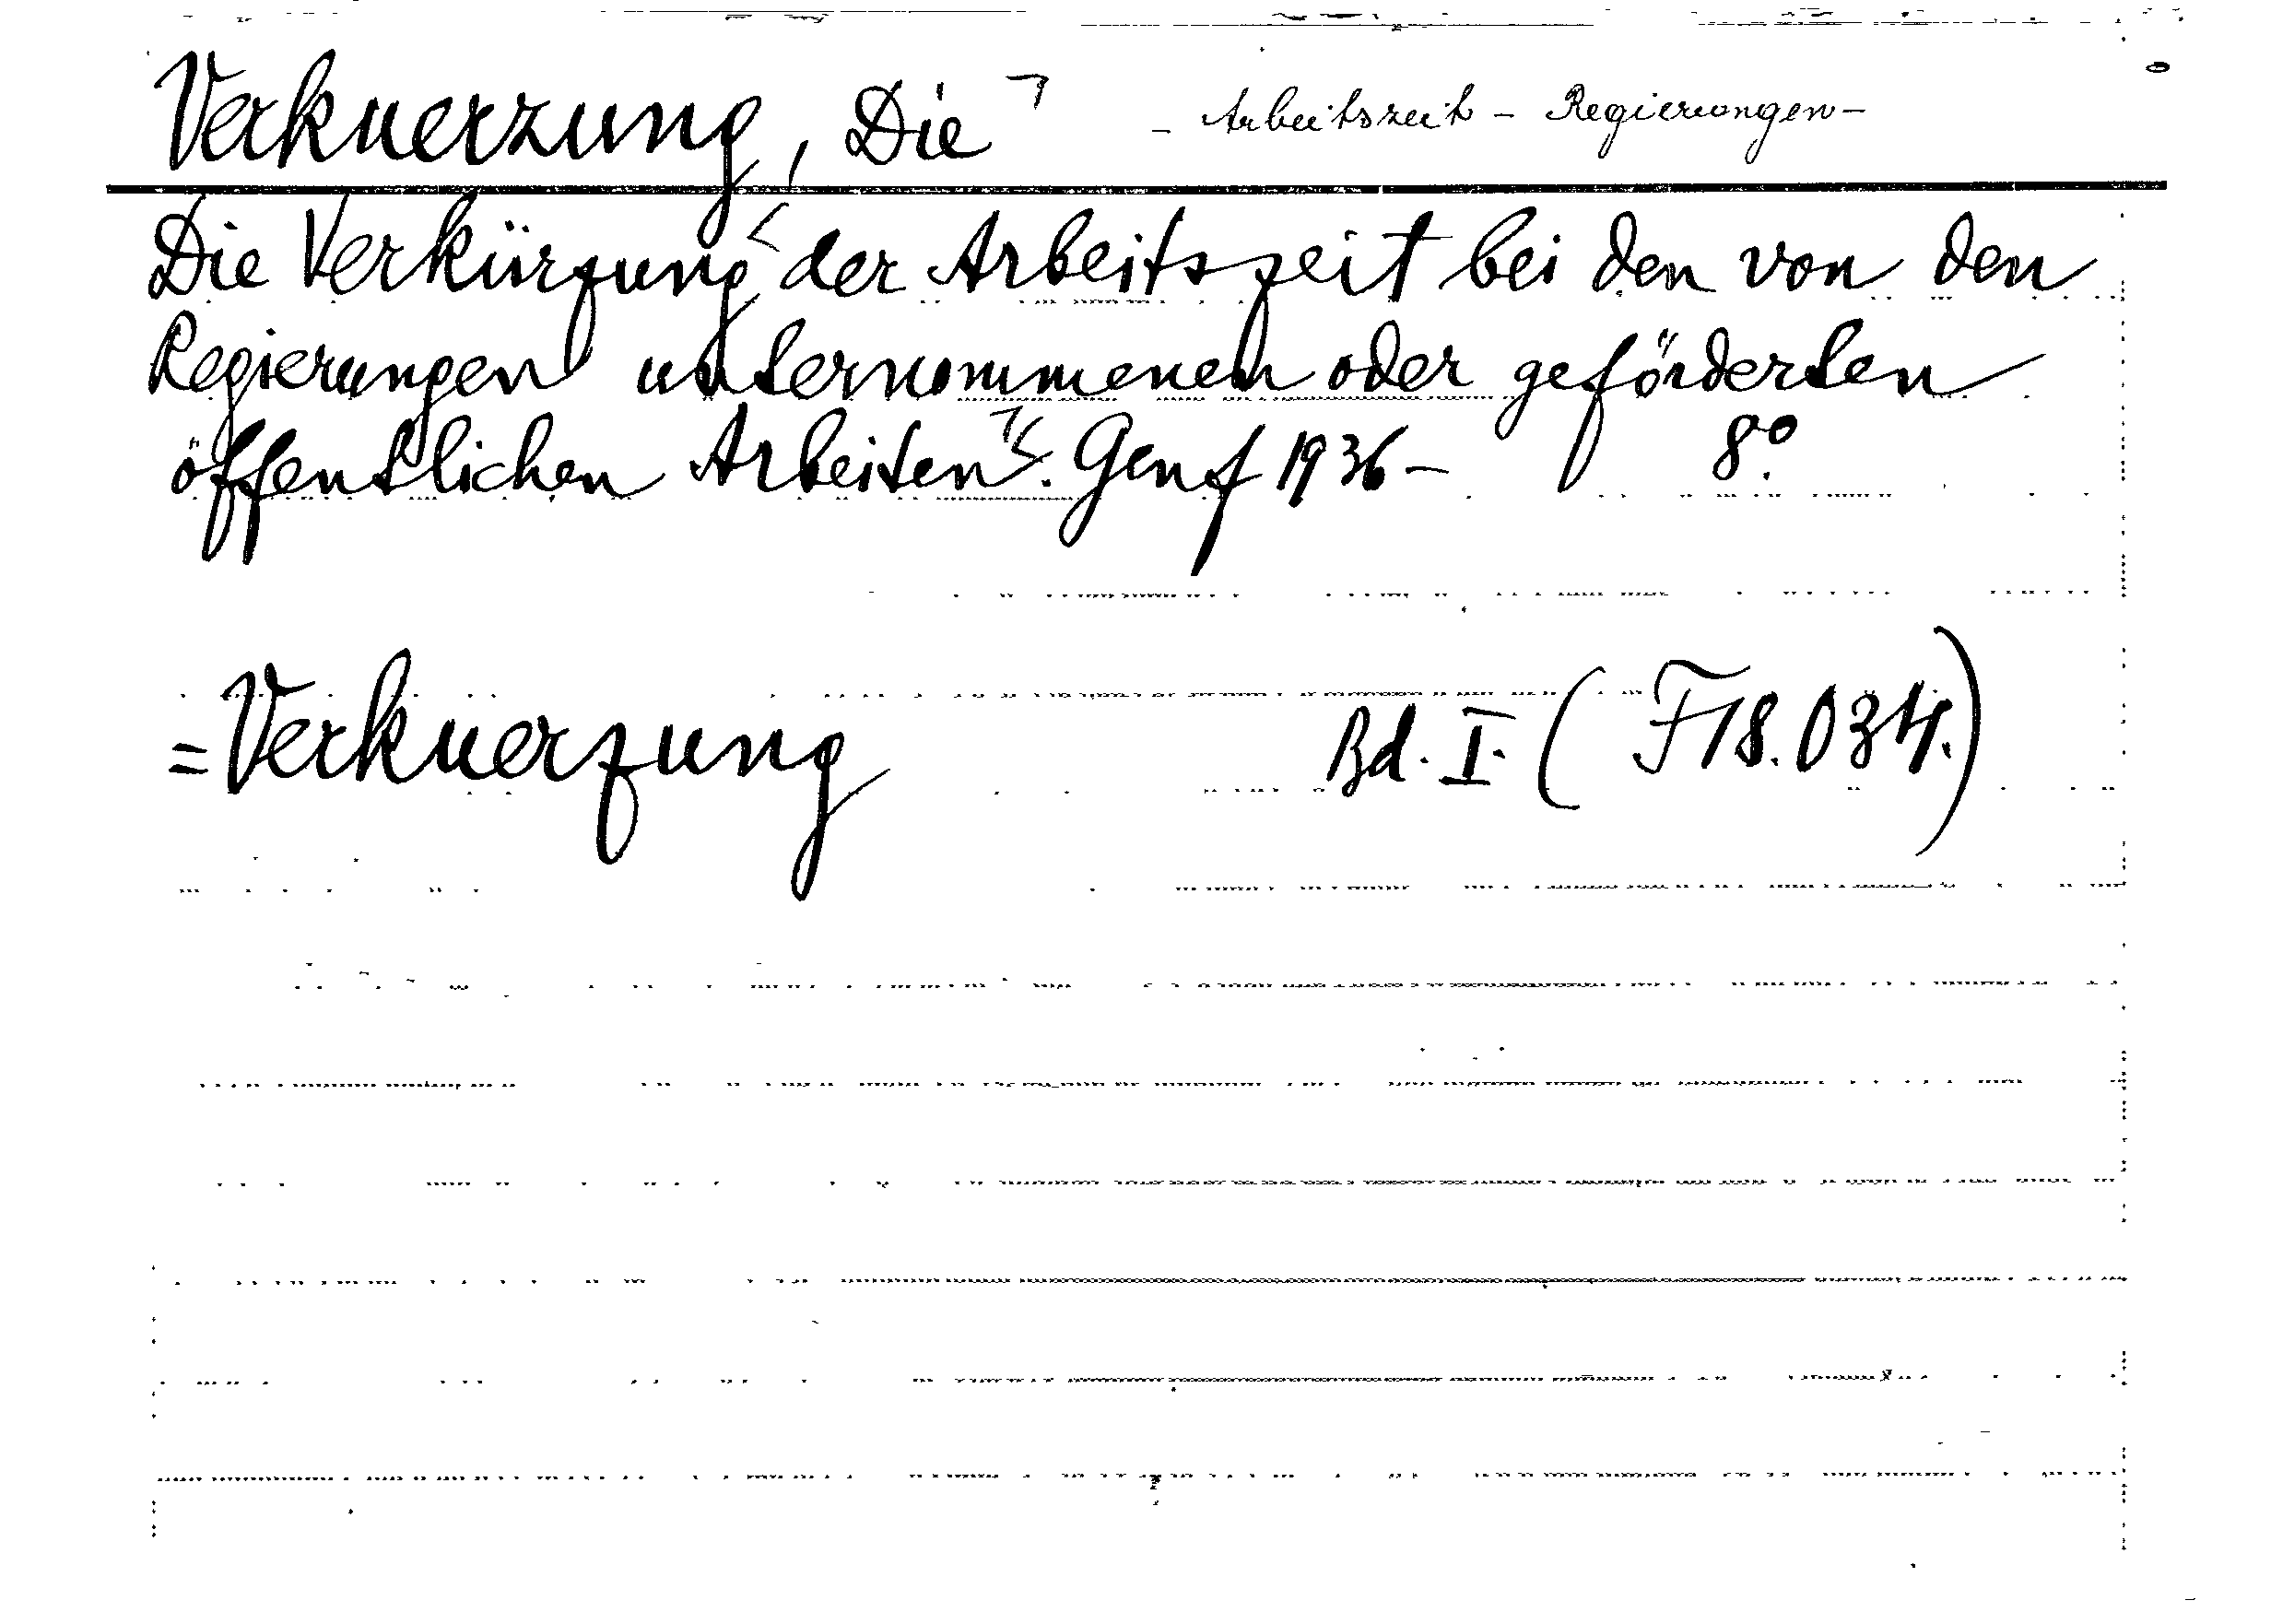 Verkuerzung, Die ⌝ - Arbeitszeit - Regierungen -
Die Verkürzung der Arbeitszeit bei den von den
Regierungen unternommenen oder geförderten
öffentlichen Arbeiten. Genf 1936- 8°.
= Verkuerzung Bd. I. (F18.034.)